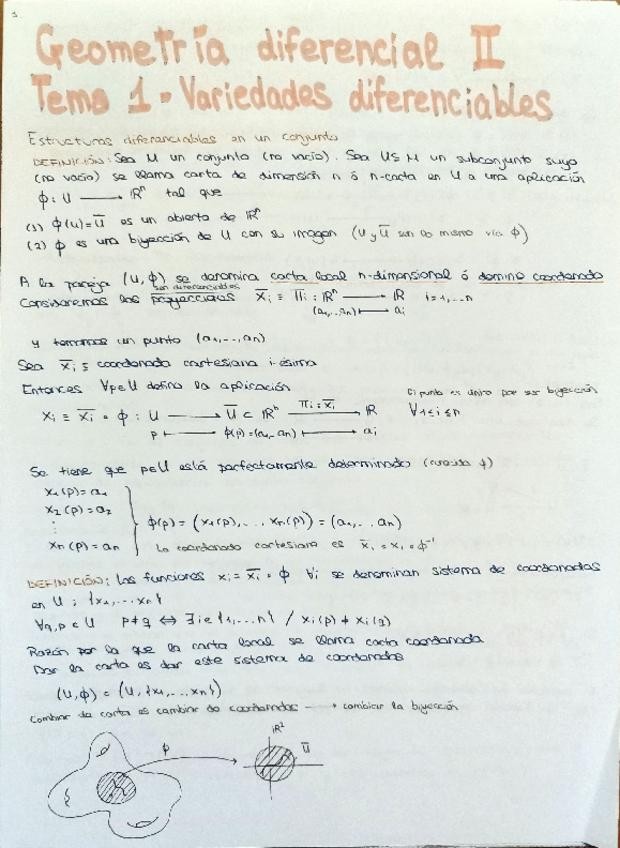 1
Geometría diferencial II
Tema 1 - Variedades diferenciables
Estructuras diferenciables en un conjunto
DEFINICIÓN: Sea M un conjunto (no vacío). Sea U⊆M un subconjunto suyo
(no vacío) se llama carta de dimensión n ó n-carta en U a una aplicación
ϕ: U ⟶ ℝⁿ tal que
(1) ϕ(U)=Ū es un abierto de ℝⁿ
(2) ϕ es una biyección de U con su imagen (U y Ū son lo mismo vía ϕ)
A la pareja (U,ϕ) se denomina carta local n-dimensional ó dominio coordenado
son diferenciables
Consideremos las proyecciones x̄ᵢ ≡ πᵢ : ℝⁿ ⟶ ℝ i=1,...n
(a₁,...aₙ) ⟼ aᵢ
y tomamos un punto (a₁,...,aₙ)
Sea x̄ᵢ ≡ coordenada cartesiana i-ésima
Entonces ∀p∈U defino la aplicación
El punto es único por ser biyección
xᵢ ≡ x̄ᵢ ∘ ϕ : U ⟶ Ū ⊂ ℝⁿ ⟶ πᵢ=x̄ᵢ ℝ ∀1≤i≤n
p ⟼ ϕ(p)=(a₁,...aₙ) ⟼ aᵢ
Se tiene que p∈U está perfectamente determinado (conocida ϕ)
x₁(p)=a₁
x₂(p)=a₂
⋮
xₙ(p)=aₙ
ϕ(p)=(x₁(p),...xₙ(p))=(a₁,...aₙ)
La coordenada cartesiana es x̄ᵢ=xᵢ∘ϕ⁻¹
DEFINICIÓN: Las funciones xᵢ=x̄ᵢ∘ϕ ∀i se denominan sistema de coordenadas
en U ; {x₁,...xₙ}
∀q,p∈U p≠q ⟺ ∃i∈{1,...n} / xᵢ(p)≠xᵢ(q)
Razón por la que la carta local se llama carta coordenada
Dar la carta es dar este sistema de coordenadas
(U,ϕ)=(U,{x₁,...xₙ})
Cambiar de carta es cambiar de coordenadas ⟶ cambiar la biyección
ϕ
ℝ²
Ū